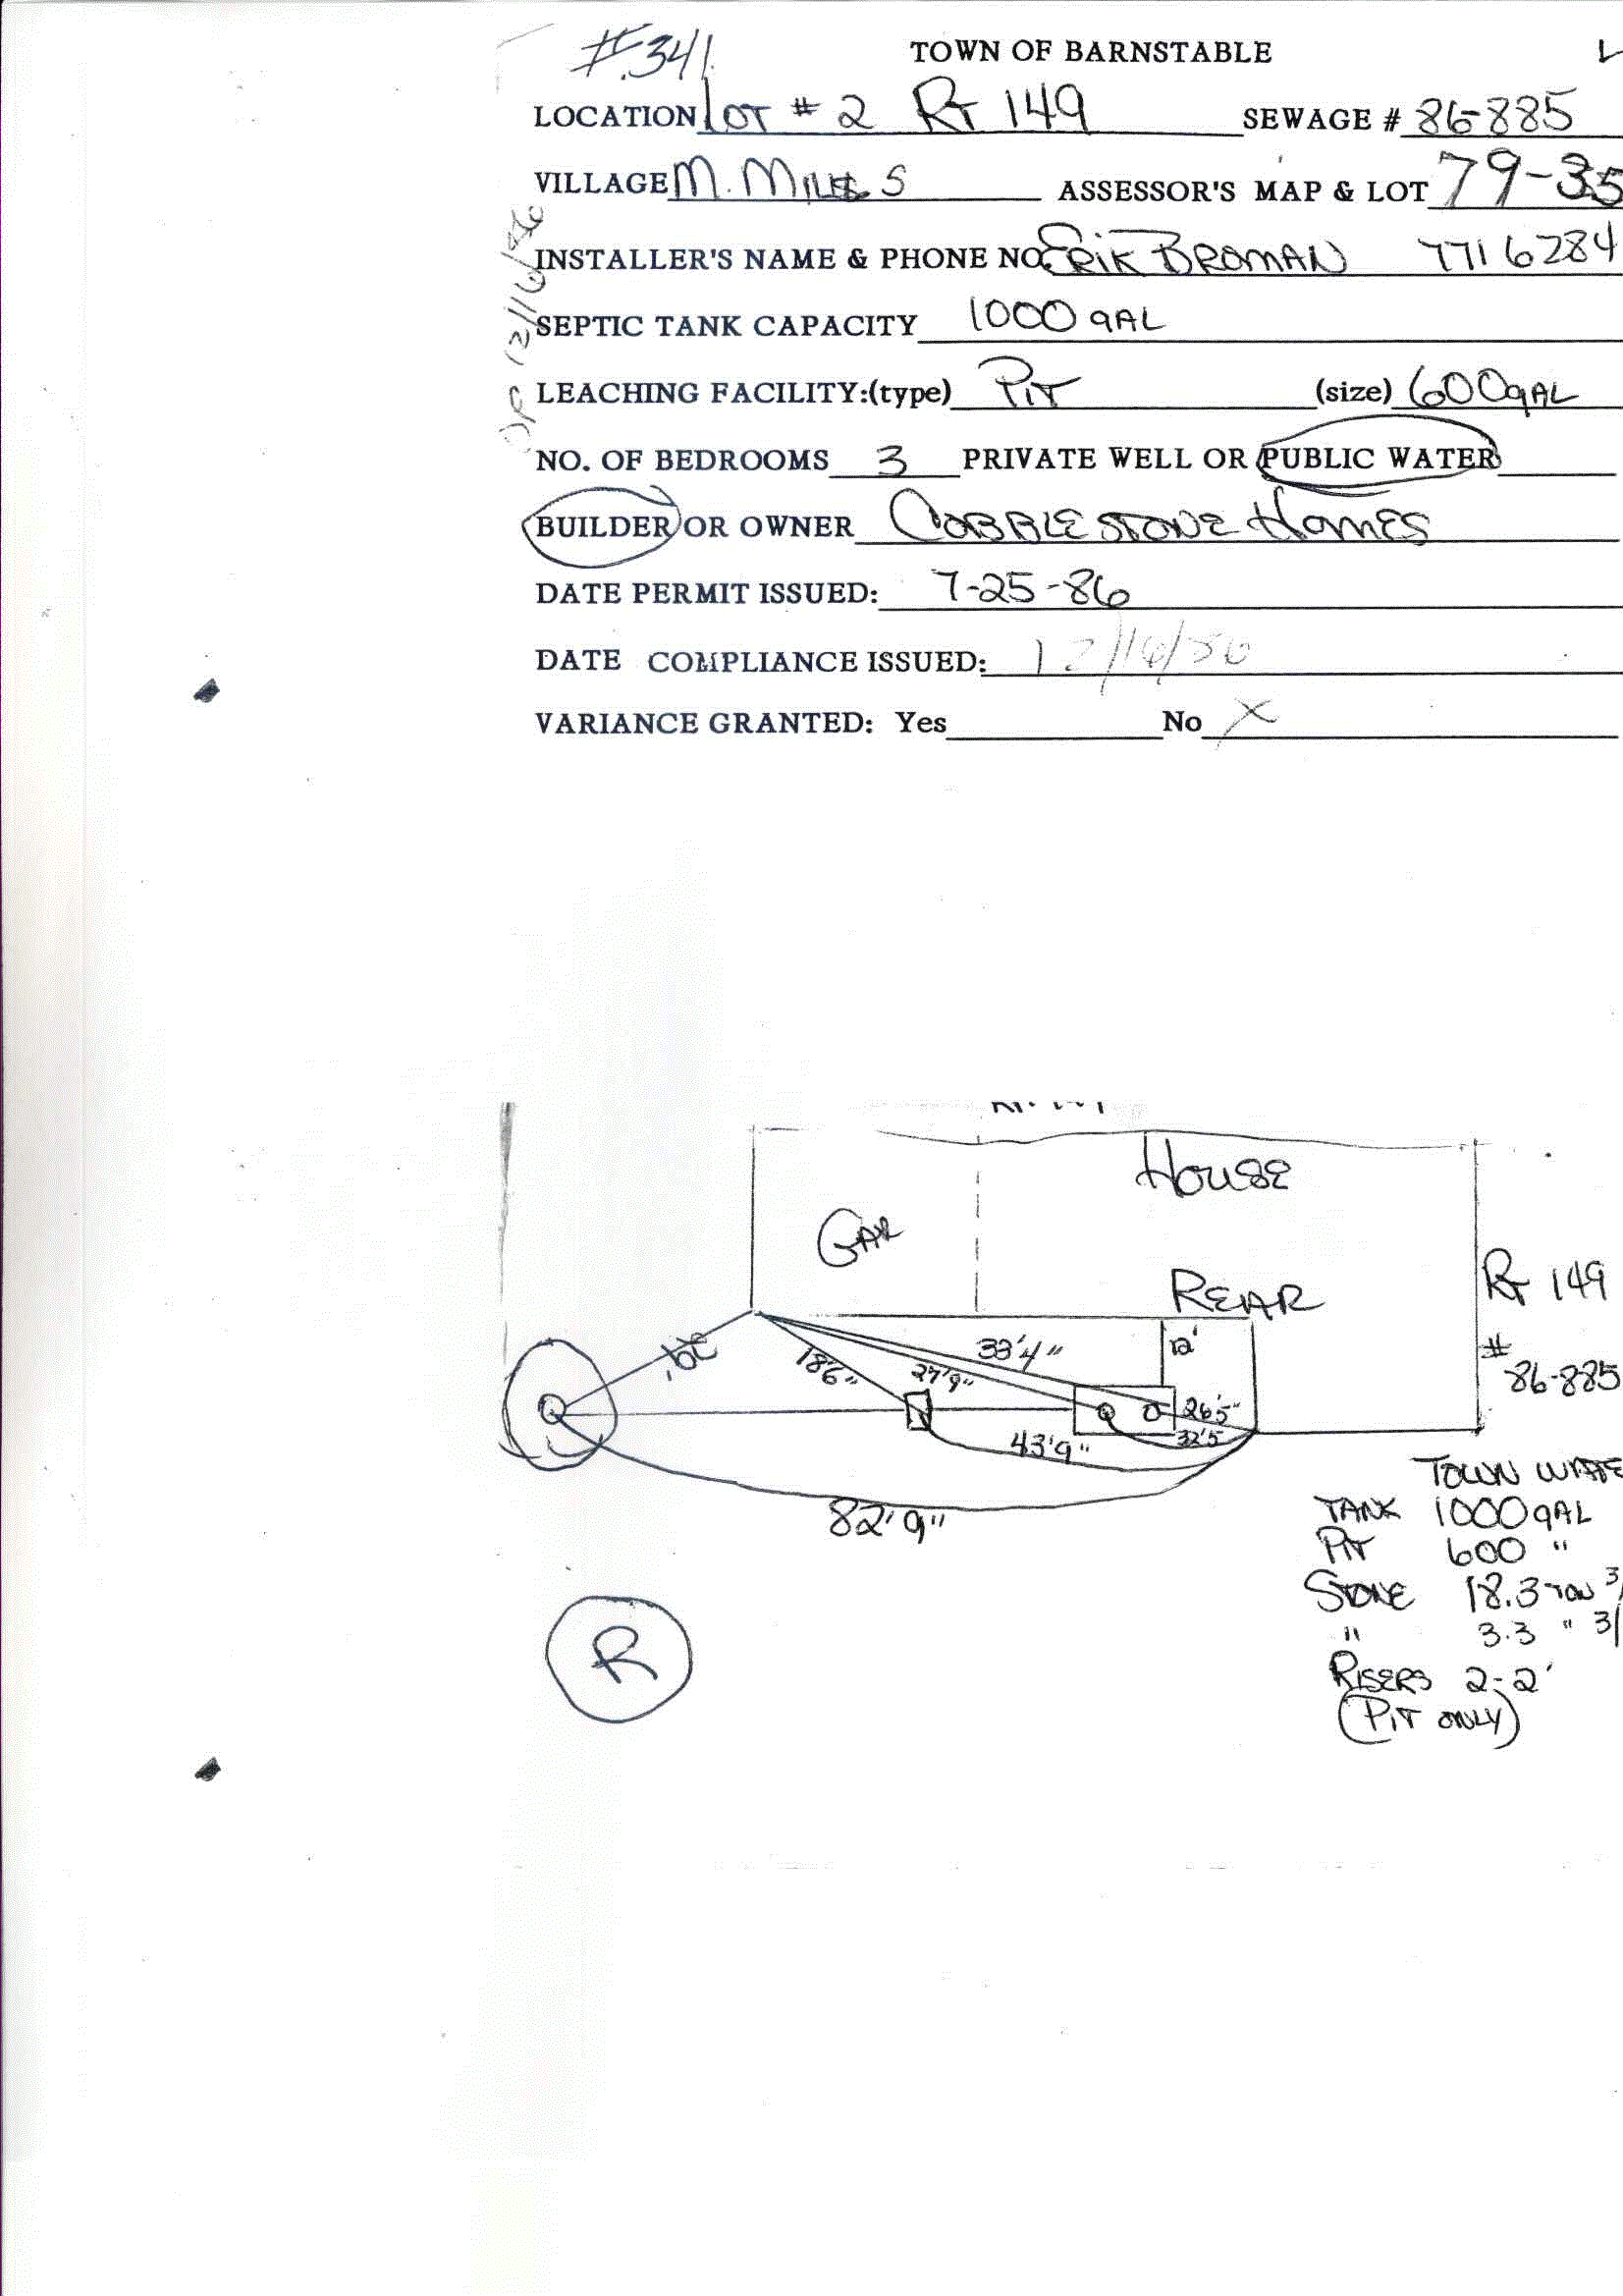 #341
TOWN OF BARNSTABLE
LOCATION LOT # 2 RT 149 SEWAGE # 86-885
VILLAGE M. MILLS ASSESSOR'S MAP & LOT 79-35
INSTALLER'S NAME & PHONE NO. ERIK BROMAN 771 6284
SEPTIC TANK CAPACITY 1000 GAL
LEACHING FACILITY:(type) PIT (size) 600 GAL
NO. OF BEDROOMS 3 PRIVATE WELL OR PUBLIC WATER
BUILDER OR OWNER COBBLESTONE HOMES
DATE PERMIT ISSUED: 7-25-86
DATE COMPLIANCE ISSUED: 12/16/86
VARIANCE GRANTED: Yes No X
12/16/86
HOUSE
GAR
REAR
RT 149
# 86-885
29'
18'6"
27'9"
33'4"
12'
26'5"
32'5
43'9"
82'9"
TOWN WATE
TANK 1000 GAL
PIT 600 "
STONE 18.3 TON 3/
" 3.3 " 3/
RISERS 2-2'
(PIT ONLY)
R